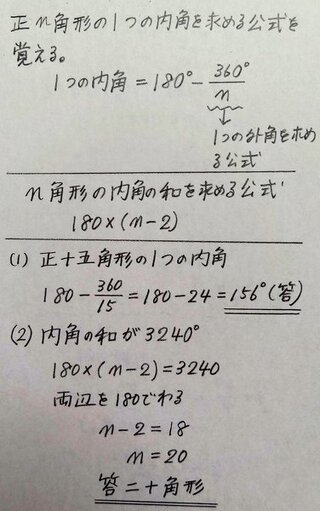 正n角形の1つの内角を求める公式を
覚える。
1つの内角 = 180° - 360°/n
↓
1つの外角を求め
る公式
n角形の内角の和を求める公式
180×(n-2)
(1) 正十五角形の1つの内角
180 - 360/15 = 180 - 24 = 156° (答)
(2) 内角の和が3240°
180×(n-2) = 3240
両辺を180でわる
n-2 = 18
n = 20
答 二十角形